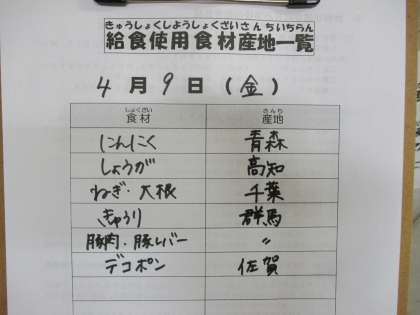 きゅうしょくしようしょくざいさんちいちらん
給食使用食材産地一覧
4月9日(金)
しょくざい さんち
食材 産地
にんにく 青森
しょうが 高知
ねぎ・大根 千葉
きゅうり 群馬
豚肉・豚レバー 〃
デコポン 佐賀